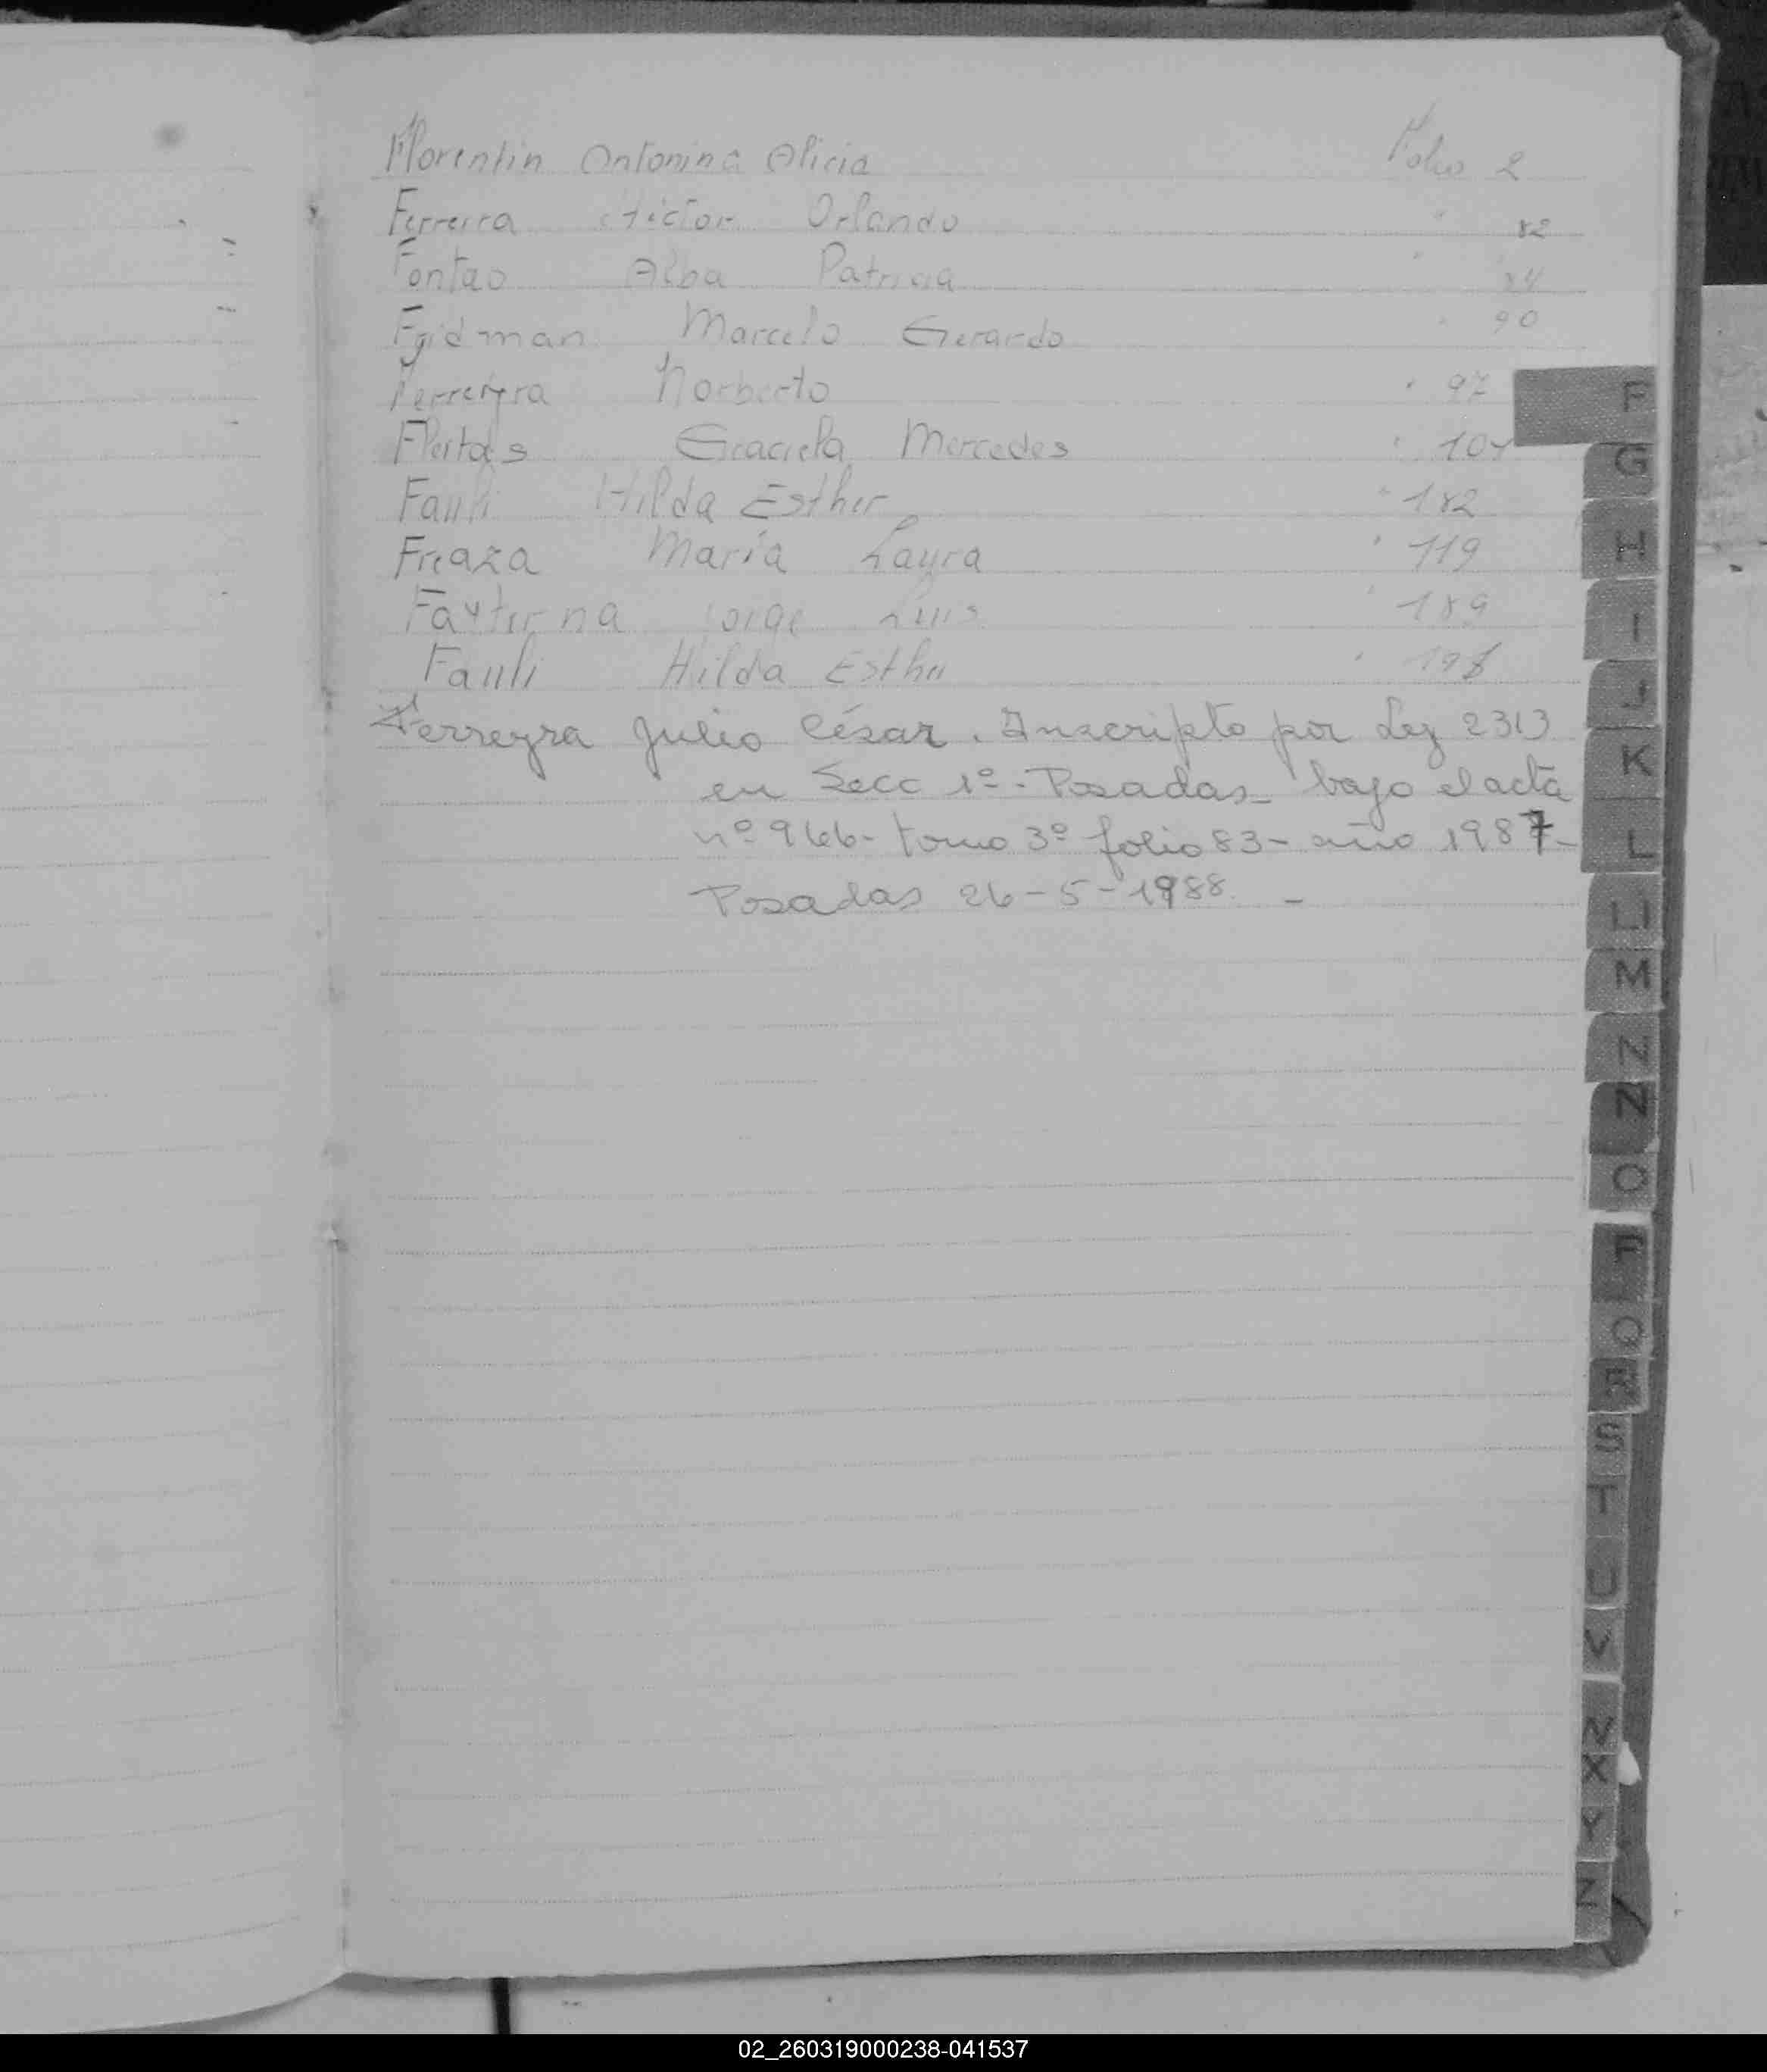 Florentin Antonina Alicia Folio 2
Ferreira Hictor Orlando " 82
Fontao Alba Patricia " 84
Fridman Marcelo Gerardo " 90
Ferreyra Norberto " 97
Fleitas Graciela Mercedes " 107
Fauli Hilda Esther " 182
Freaza María Laura " 119
Jorge Luis " 189
Fauli Hilda Esther " 198
Ferreyra Julio César. Inscripto por Ley 2313
en Secc 1º - Posadas - bajo el acta
nº 966 - tomo 3º folio 83 - año 1987 -
Posadas 26-5-1988. -
F
G
H
I
J
K
L
LL
M
N
Ñ
O
P
Q
R
S
T
U
V
X
Y
Z
02_260319000238-041537